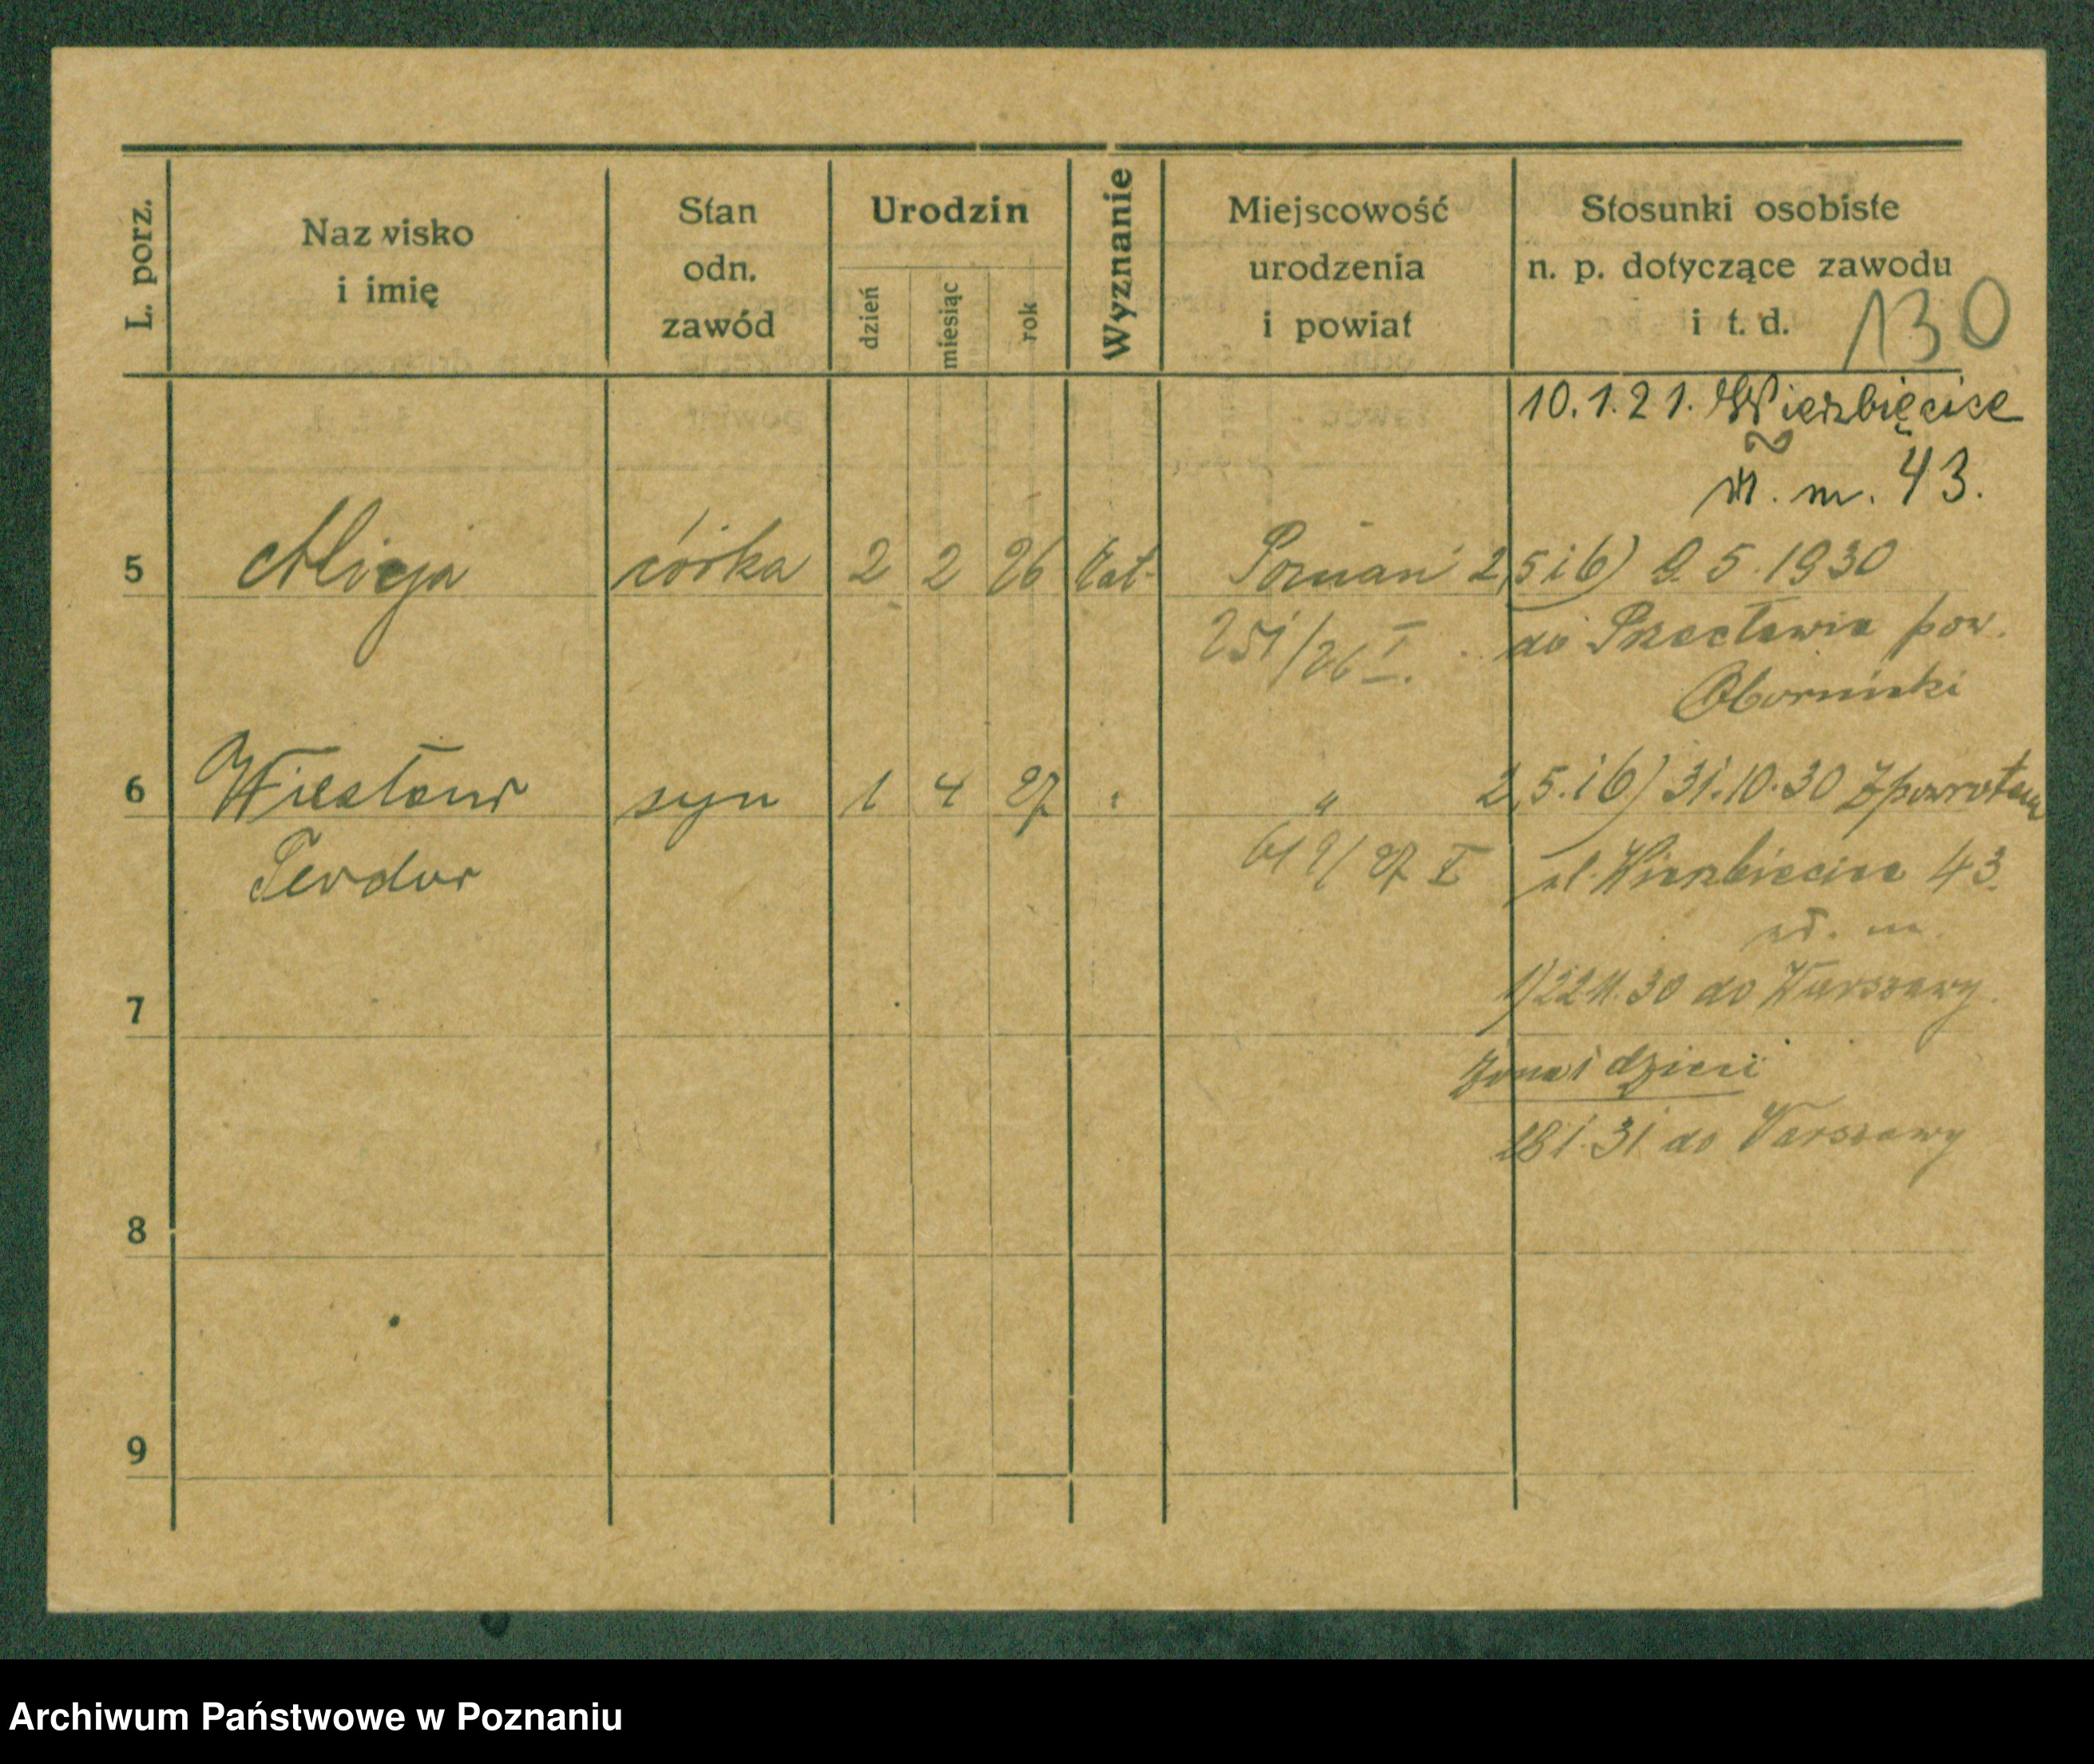 L. porz.
Nazwisko
i imię
Stan
odn.
zawód
Urodzin
dzień
miesiąc
rok
Wyznanie
Miejscowość
urodzenia
i powiat
Stosunki osobiste
n. p. dotyczące zawodu
i t. d.
130
10.1.21. Wierzbięcice
m. 43.
5 Alicja córka 2 2 26 kat. Poznań 2,5 i 6) 9.5.1930
251/26 I. do Przecławia pow.
Obornicki
6 Wiesław syn 1 4 27 " " 2,5. i 6) 31.10.30 Zpowrotem
Teodor 619/27 I ul. Wierzbięcice 43.
wł. m.
7 1) 22.11.30 do Warszawy.
Żona i dzieci
28.1.31 do Warszawy
8
9
Archiwum Państwowe w Poznaniu